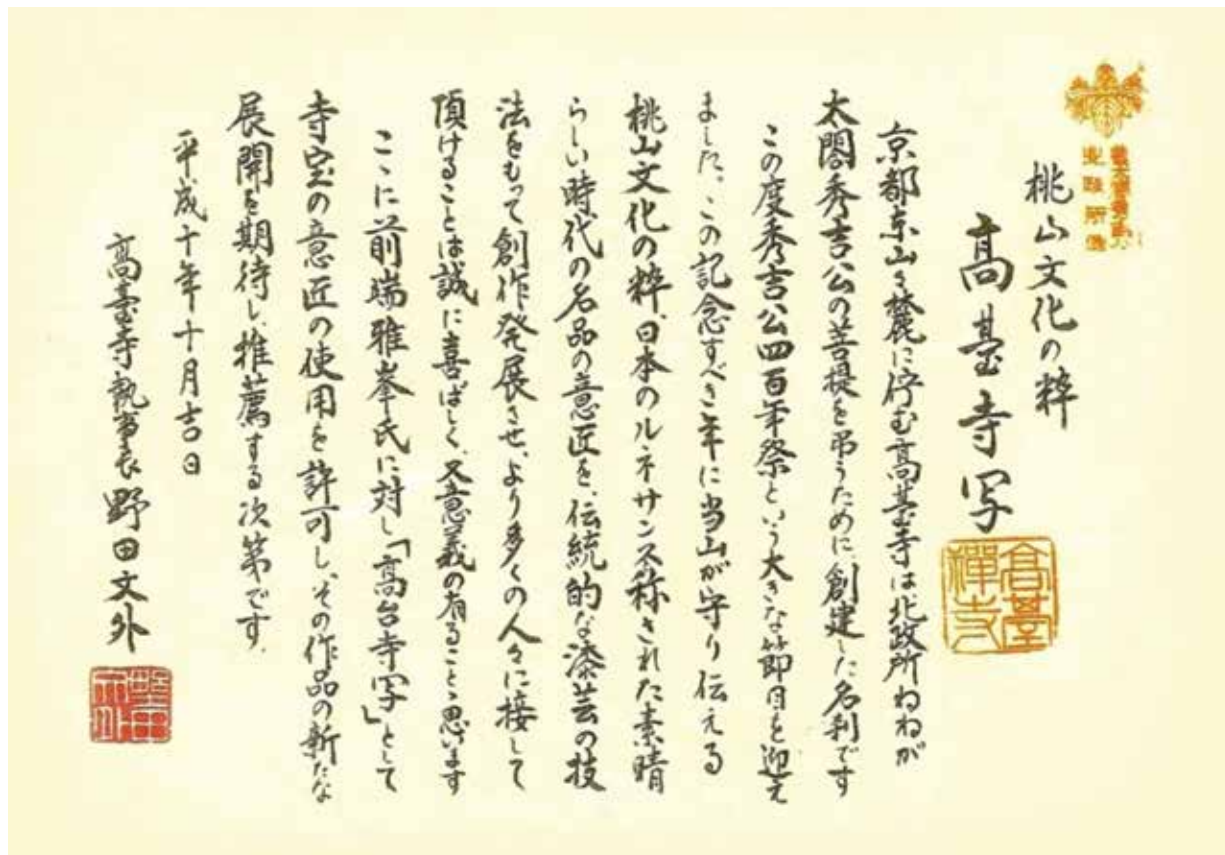 桃山文化の粋
高臺寺写
高臺禪寺
京都東山々麓に佇む高臺寺は北政所ねねが
太閤秀吉公の菩提を弔うために創建した名刹です
この度秀吉公四百年祭という大きな節目を迎え
ました。この記念すべき年に当山が守り伝える
桃山文化の粋、日本のルネサンス称された素晴
らしい時代の名品の意匠を、伝統的な漆芸の技
法をもって創作発展させ、より多くの人々に接して
頂けることは誠に喜ばしく、又意義の有ることゝ思います
こゝに前端雅峯氏に対し「高台寺写」として
寺宝の意匠の使用を許可し、その作品の新たな
展開を期待し、推薦する次第です.
平成十年十月吉日
高臺寺執事長 野田文外